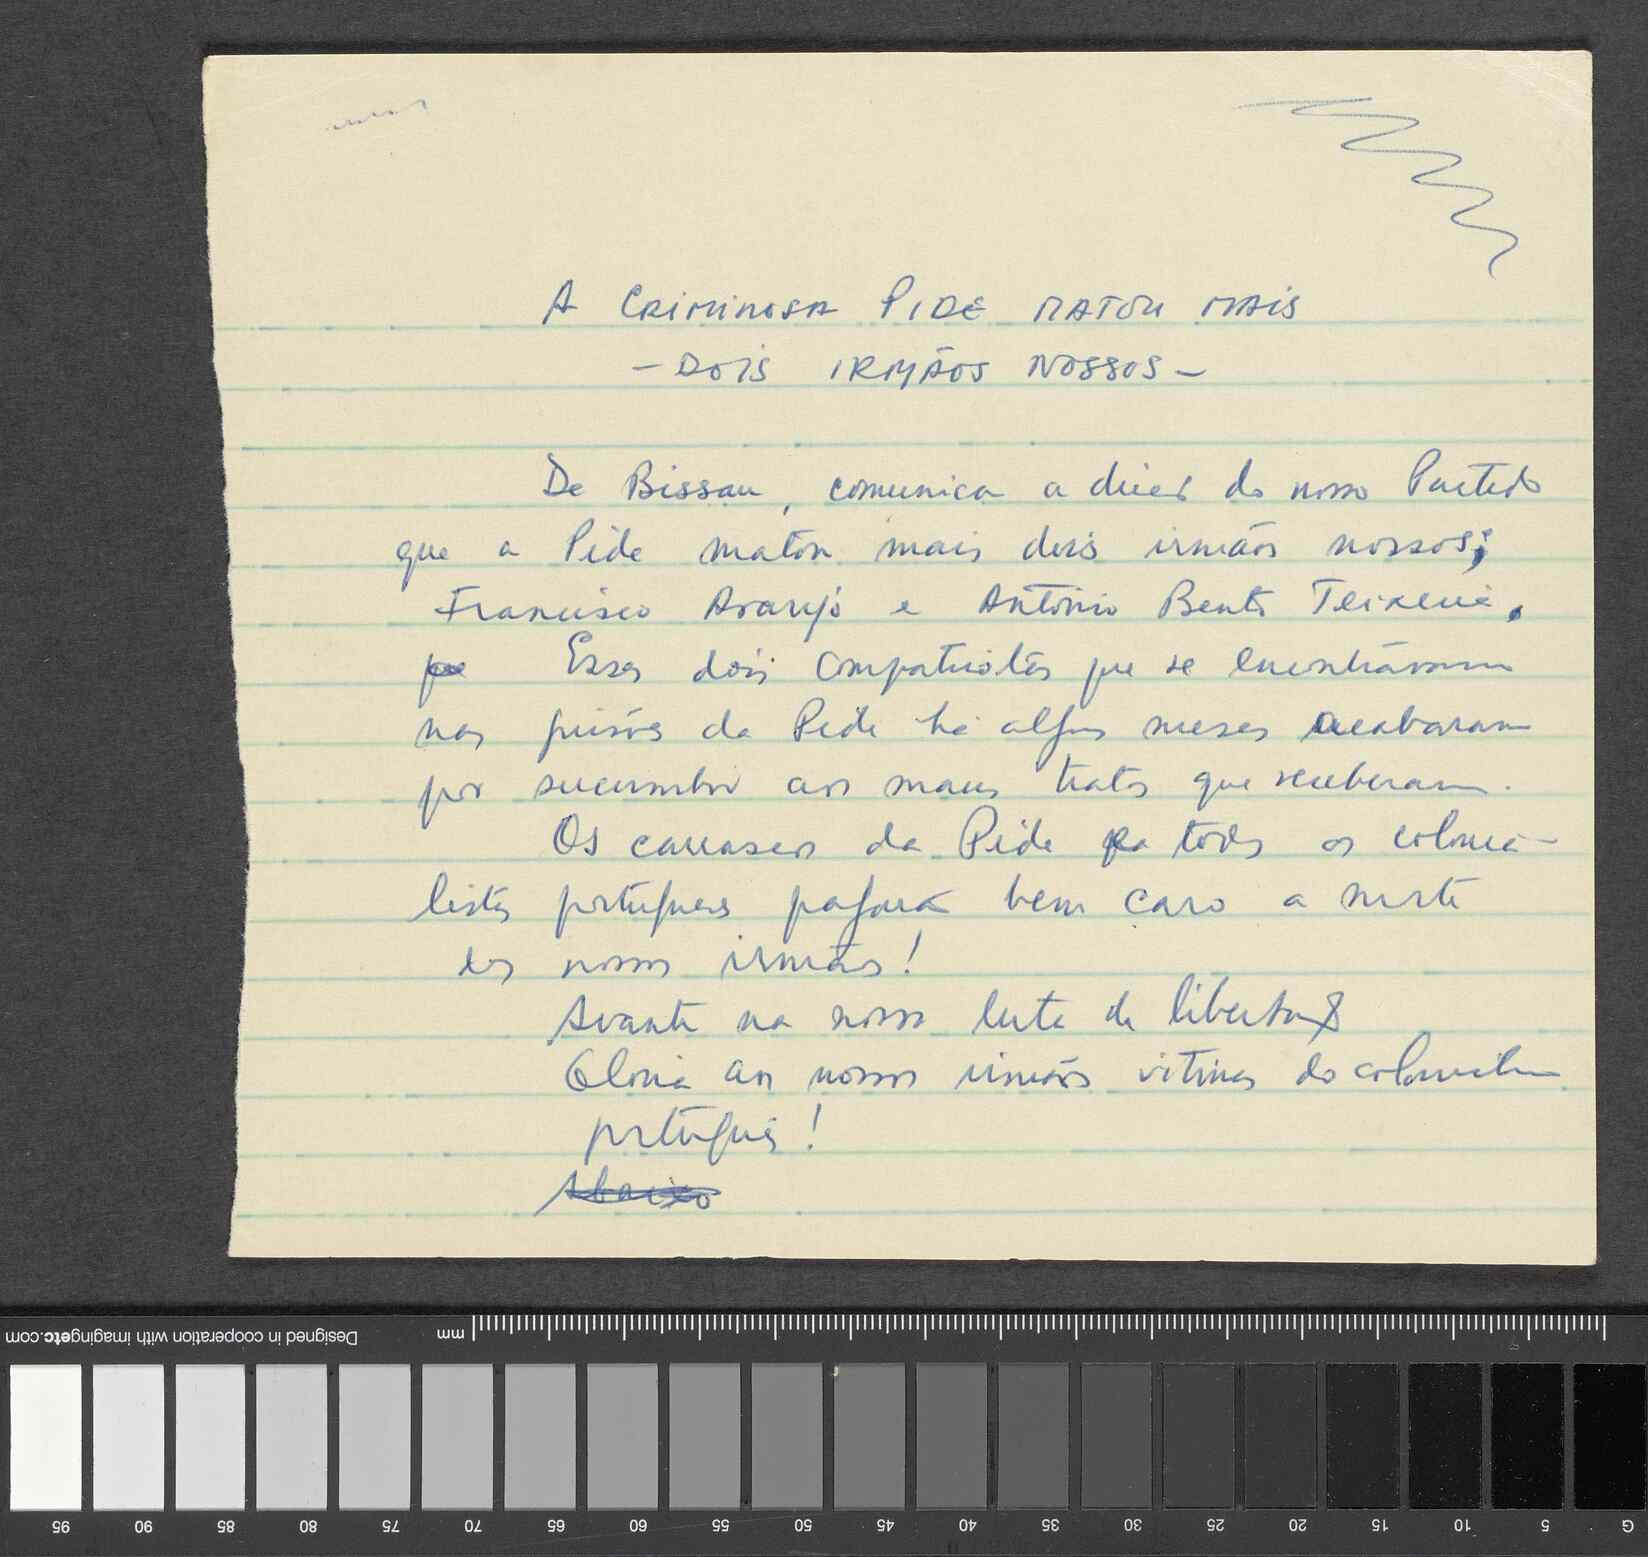 A CRIMINOSA PIDE MATOU MAIS
- DOIS IRMÃOS NOSSOS -
De Bissau, comunica a direç do nosso Partido
que a Pide matou mais dois irmãos nossos;
Francisco Araujo e António Bento Teixeira.
Esses dois compatriotas que se encontravam
nas prisões da Pide há alguns meses acabaram
por sucumbir aos maus tratos que receberam.
Os carrascos da Pide todos os colonia-
listas portugueses pagarão bem caro a morte
dos nossos irmãos!
Avante na nossa luta de libertação
Gloria aos nossos irmãos vitimas do colonialismo
português!
Abaixo
Designed in cooperation with imagingetc.com
mm
95 90 85 80 75 70 65 60 55 50 45 40 35 30 25 20 15 10 5 G